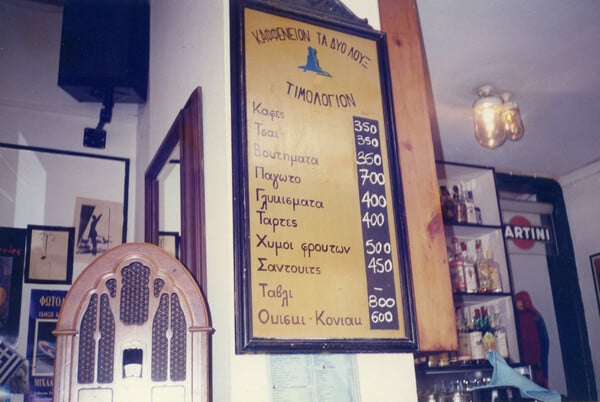 ΚΑΦΦΕΝΕΙΟΝ ΤΑ ΔΥΟ ΛΟΥΞ
ΤΙΜΟΛΟΓΙΟΝ
Καφες 350
Τσαι 350
Βουτηματα 350
Παγωτο 700
Γλυκισματα 400
Ταρτες 400
Χυμοι φρουτων 500
Σαντουιτς 450
Ταβλι - 800
Ουισκι - Κονιακ 600
MARTINI
ΦΩΤΟ